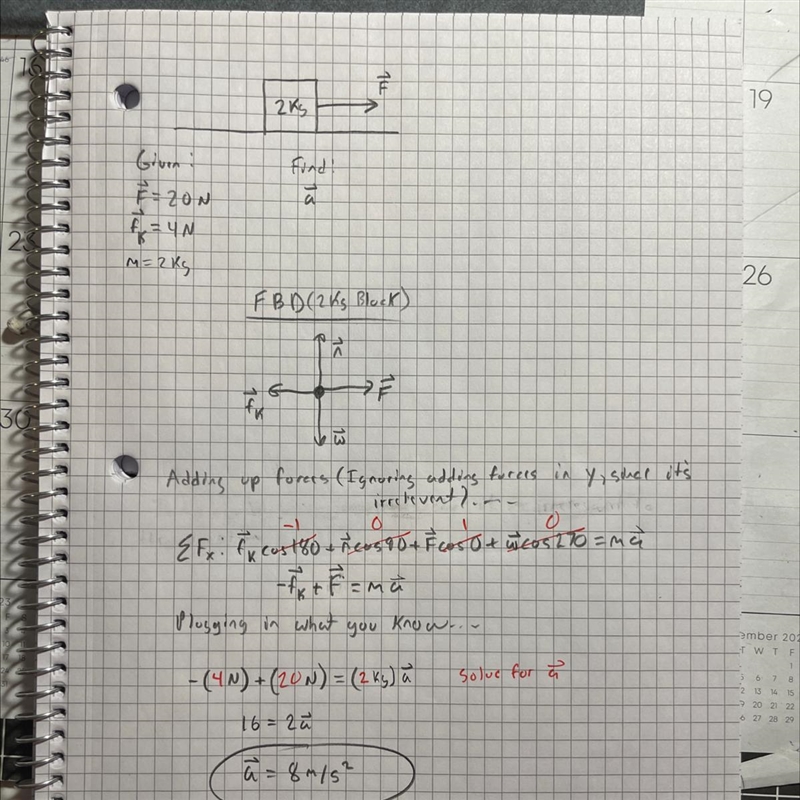 16
19
23
26
30
2Kg
F⃗
Given:
Find:
F⃗ = 20N
a⃗
f⃗K = 4N
m = 2Kg
FBD (2Kg Block)
n⃗
f⃗K
F⃗
w⃗
Adding up forces (Ignoring adding forces in y, since its
irrelevent)....
-1 0 1 0
ΣFx: f⃗K cos180 + n⃗cos90 + F⃗cos0 + w⃗cos270 = ma⃗
-f⃗K + F⃗ = ma⃗
Plugging in what you know....
-(4N) + (20N) = (2Kg)a⃗ solve for a⃗
16 = 2a⃗
a⃗ = 8m/s²
ember 202
T W T F
1
5 6 7 8
2 13 14 15
9 20 21 22
6 27 28 29